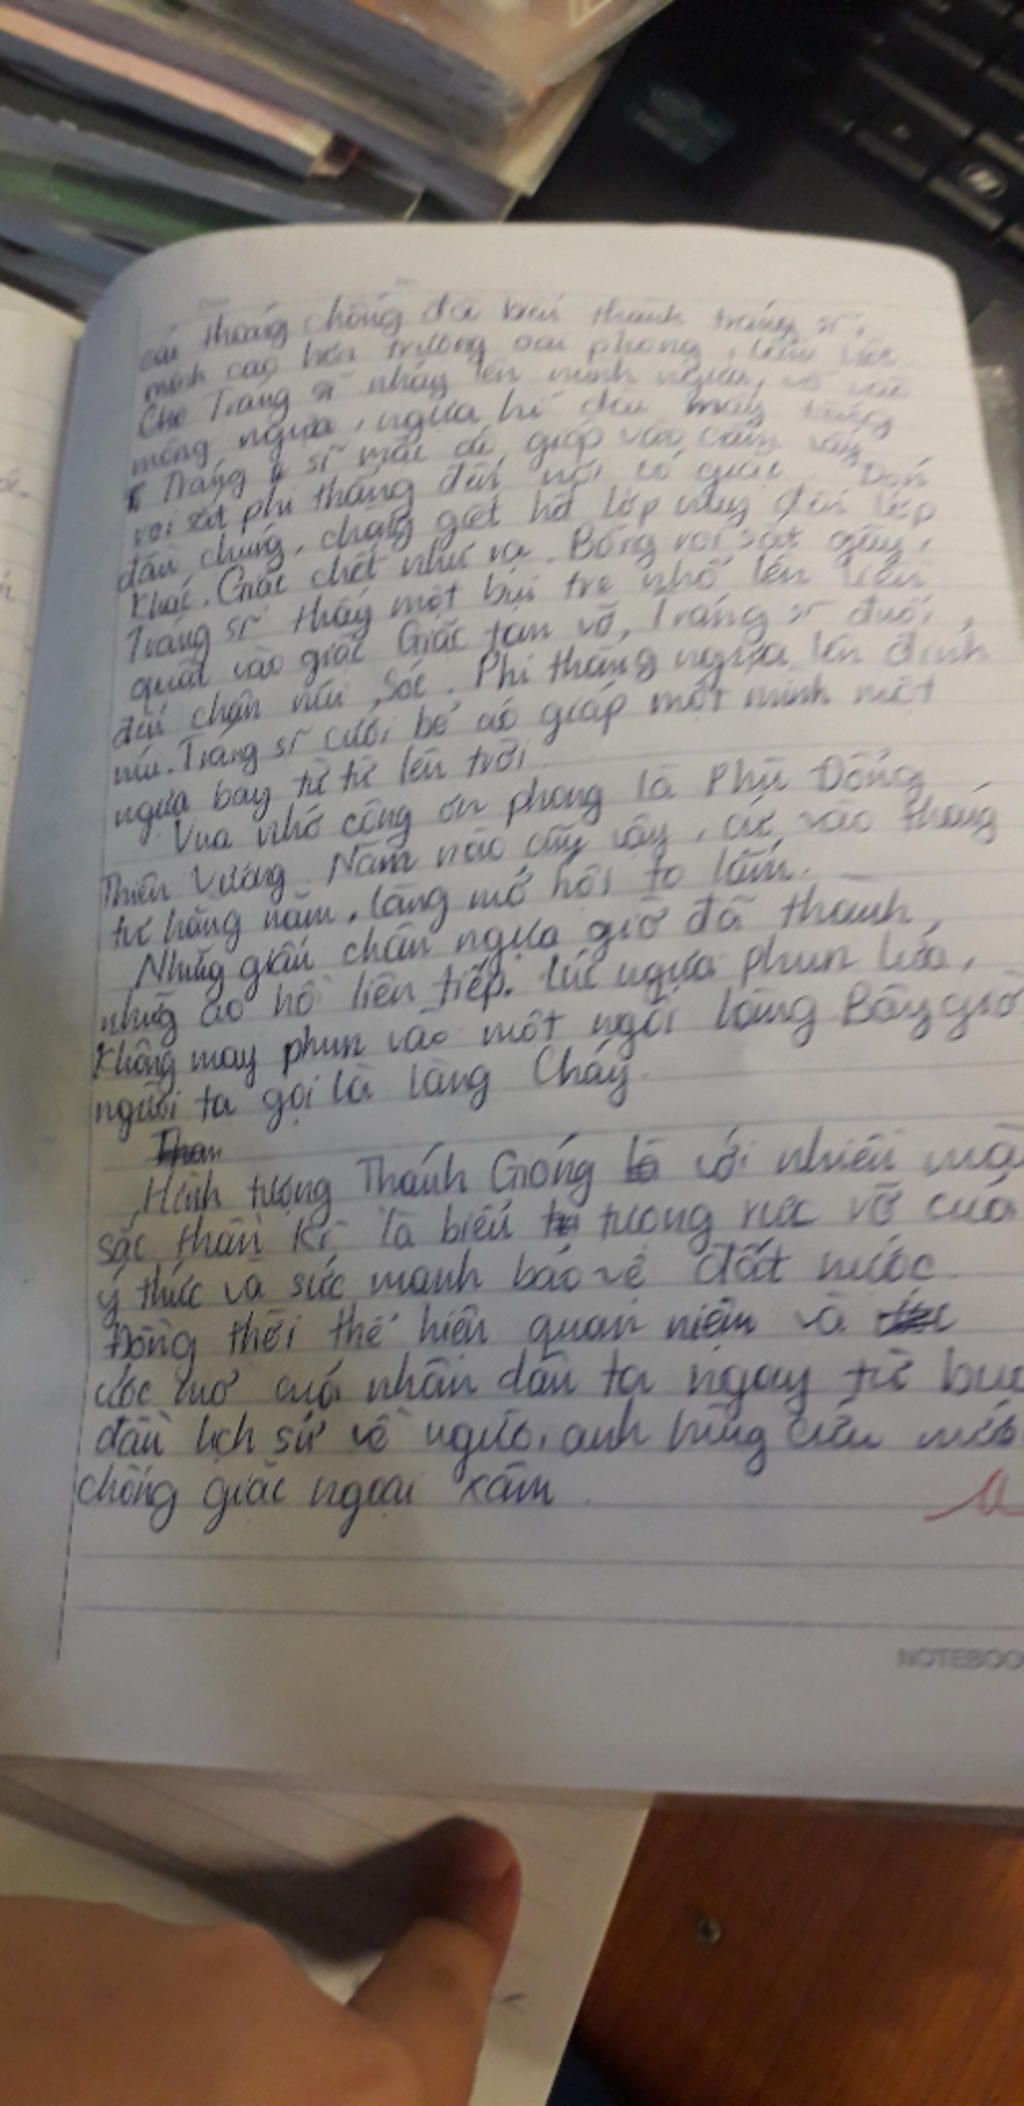 cái thoáng chồng đã biến thành tráng sĩ,
mình cao hơn trượng oai phong, lẫm liệt
Chế Tráng sĩ nhảy lên mình ngựa, vỗ vào
mông ngựa, ngựa hí dài mấy tiếng
Tráng sĩ mặc áo giáp vào cầm cây
roi sắt phi thẳng đến nơi có giặc Đón
đầu chúng, chàng giết hết lớp này đến lớp
khác. Giặc chết như rạ. Bỗng roi sắt gãy,
Tráng sĩ thấy một bụi tre nhổ lên liền
quật vào giặc Giặc tan vỡ, Tráng sĩ đuổi,
đến chân núi Sóc. Phi thẳng ngựa lên đỉnh
núi. Tráng sĩ cưởi bỏ áo giáp một mình một
ngựa bay từ từ lên trời.
Vua nhớ công ơn phong là Phù Đổng
Thiên Vương. Năm nào cũy vậy, cứ vào tháng
tư hằng năm, làng mở hội to lắm.
Những giấu chân ngựa giờ đã thành
nhữg ao hồ liên tiếp. Lúc ngựa phun lửa,
không may phun vào một ngôi làng Bây giờ
người ta gọi là làng Cháy.
Hình tượng Thánh Gióng với nhiều mà
sắc thần kì là biểu tượng rực vỡ của
ý thức và sức mạnh bảo vệ đất nước.
Đồng thời thể hiện quan niệm và
ước mơ của nhân dân ta ngay từ buổ
đầu lịch sử về người anh hùng cứu nước
chống giặc ngoại xâm.
NOTEBOO